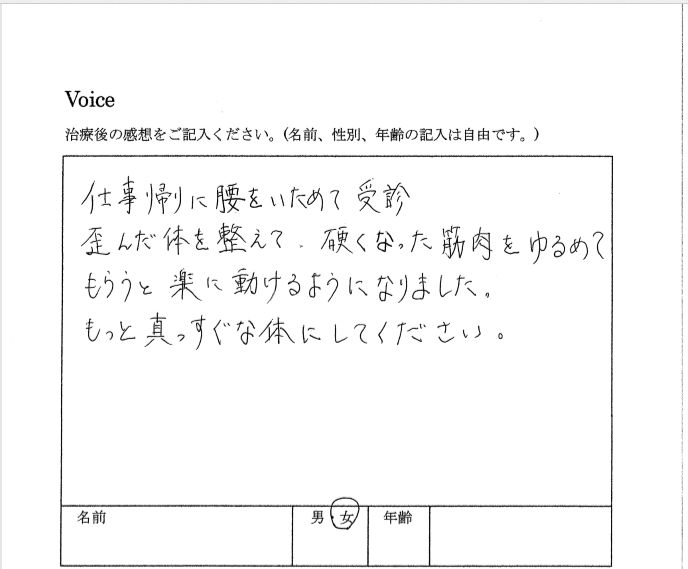 Voice
治療後の感想をご記入ください。(名前、性別、年齢の記入は自由です。)
仕事帰りに腰をいためて受診
歪んだ体を整えて、硬くなった筋肉をゆるめて
もらうと楽に動けるようになりました。
もっと真っすぐな体にしてください。
名前 男・女 年齢